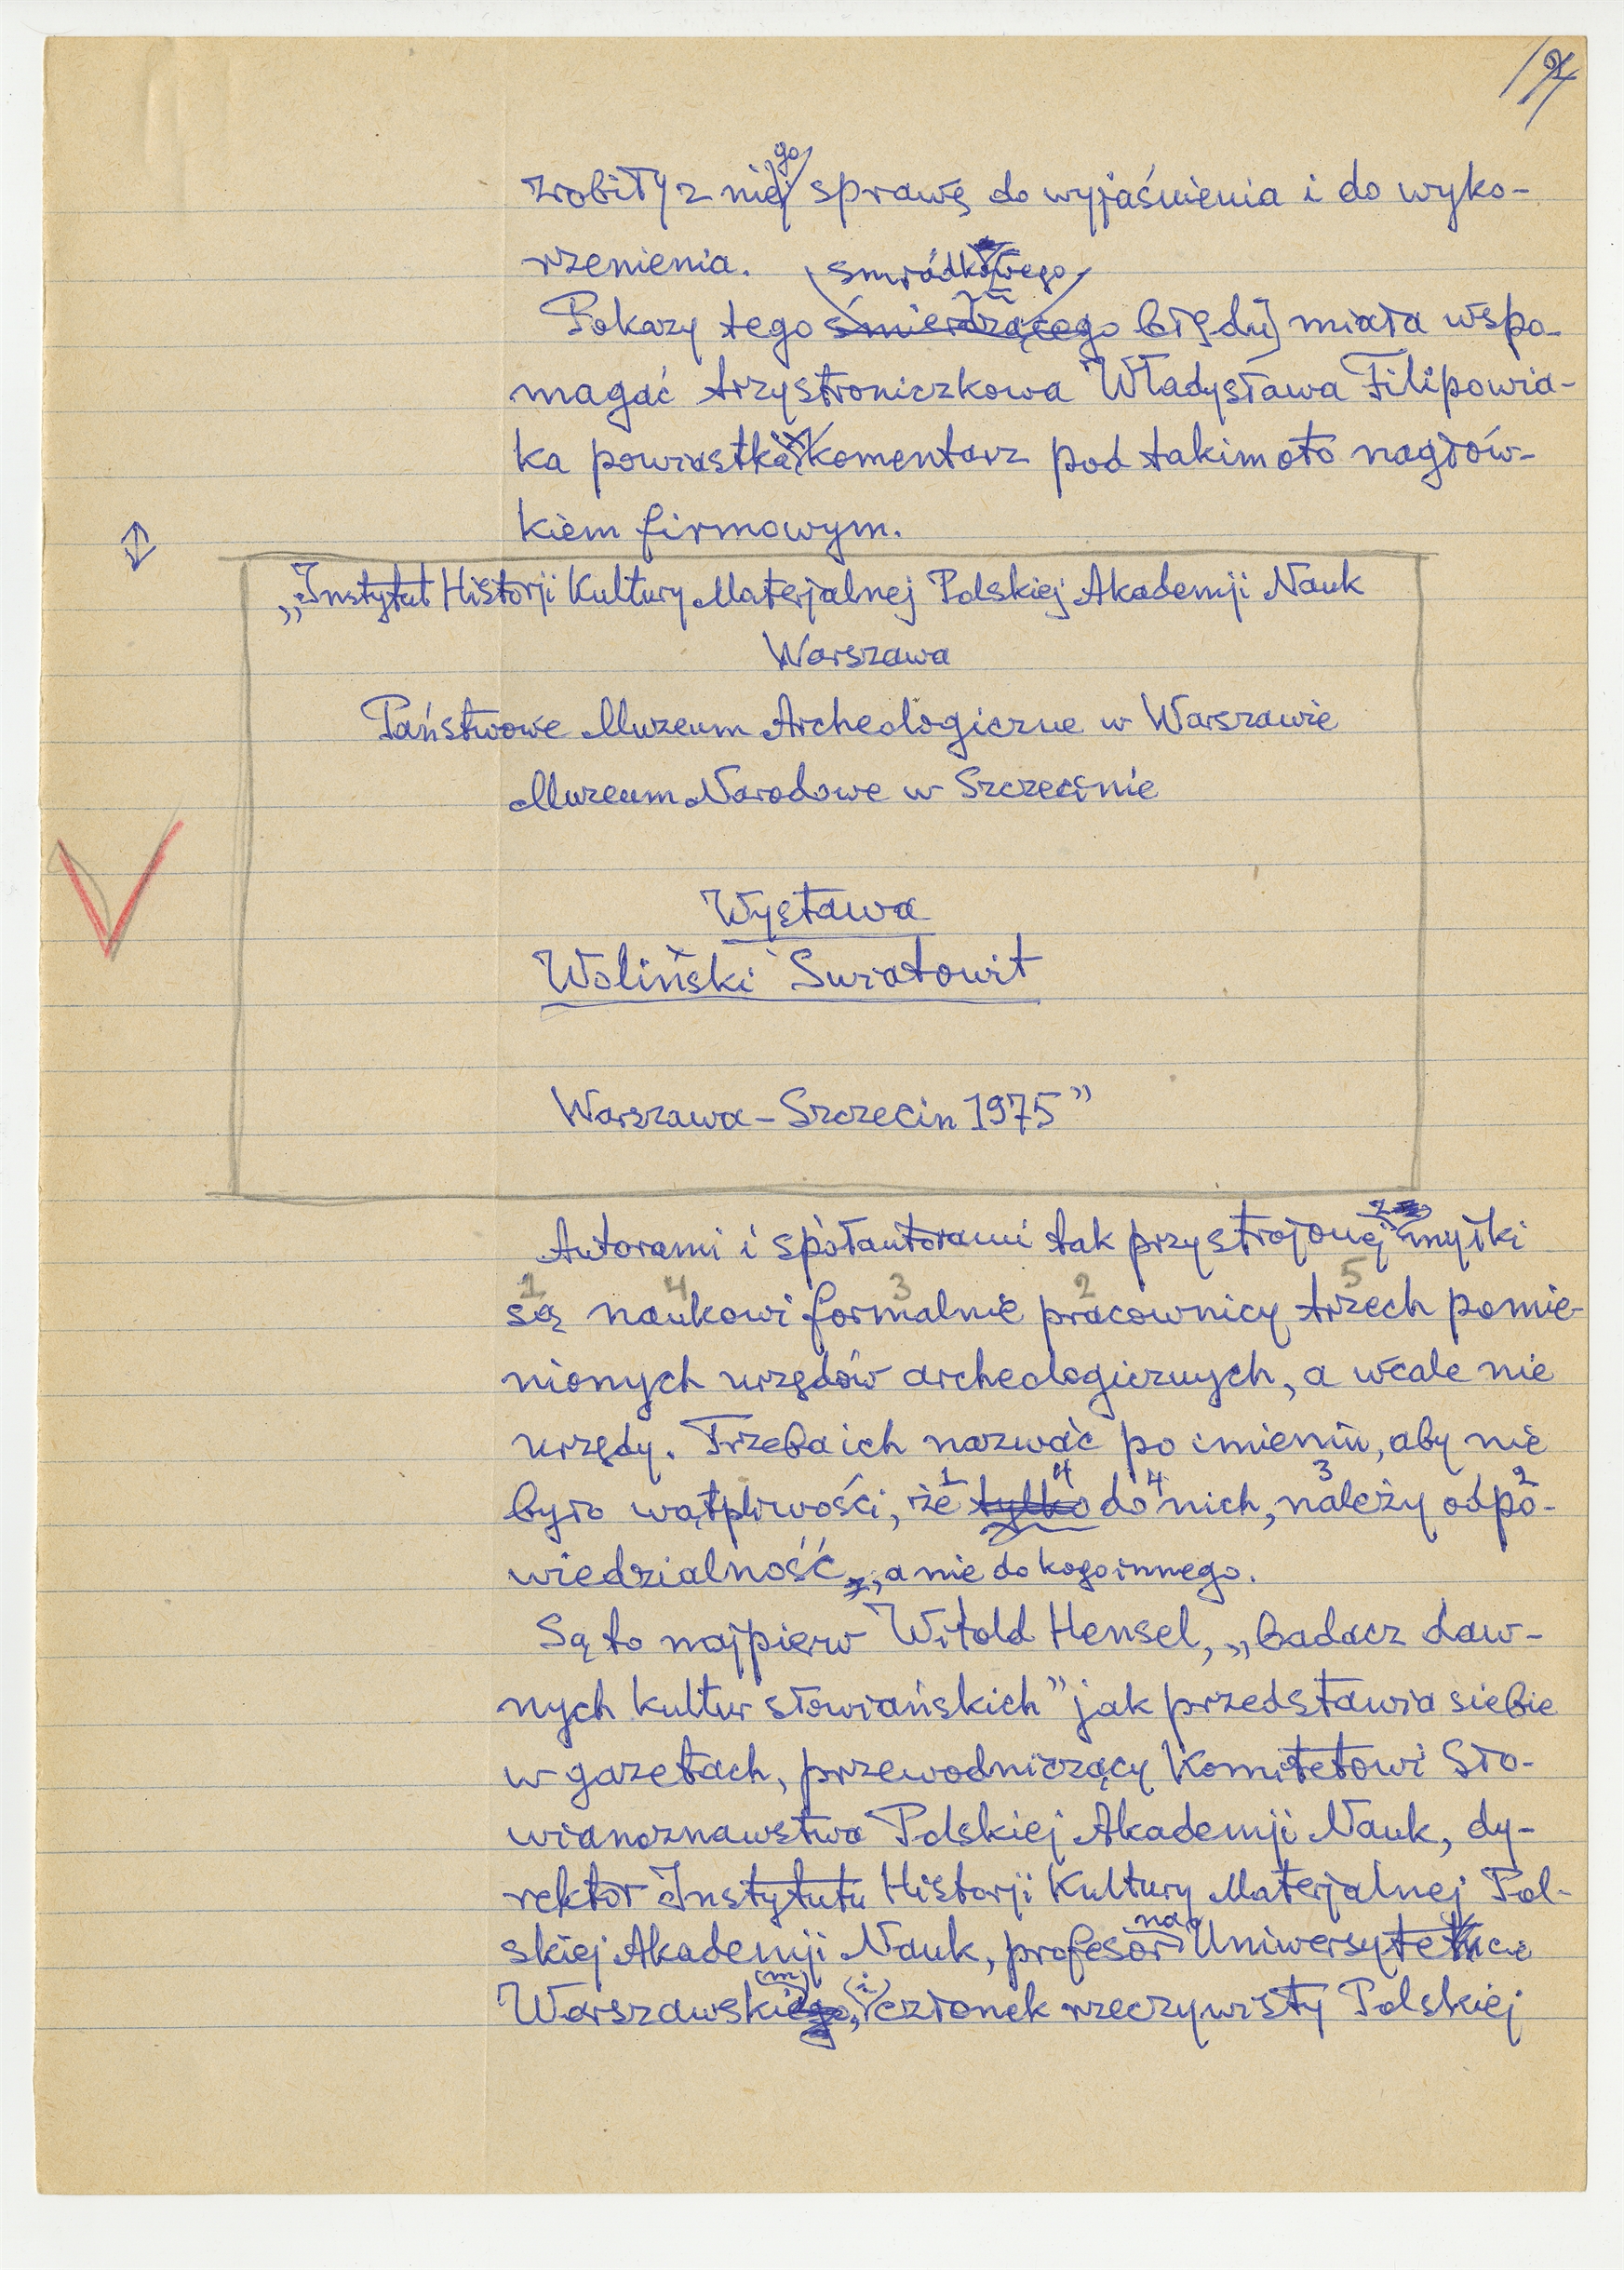 zrobiły z niego sprawę do wyjaśnienia i do wyko-
rzenienia.
smrodkowego
Pokazy tego śmierdzącego błędu miała wspo-
magać trzystroniczkowa Władysława Filipowia-
ka powiastka komentarz pod takim oto nagłów-
kiem firmowym.
„Instytut Historji Kultury Materjalnej Polskiej Akademji Nauk
Warszawa
Państwowe Muzeum Archeologiczne w Warszawie
Muzeum Narodowe w Szczecinie
Wystawa
Woliński Swiatowit
Warszawa – Szczecin 1975”
Autorami i spółautorami tak przystrojonej zmyłki
1 4 3 2 5
są naukowi formalnie pracownicy trzech pomie-
nionych urzędów archeologicznych, a wcale nie
urzędy. Trzeba ich nazwać po imieniu, aby nie
1 4 4 3 2
było wątpliwości, że tylko do nich, należy odpo-
wiedzialność, a nie do kogo innego.
Są to najpierw Witold Hensel, „badacz daw-
nych kultur słowiańskich” jak przedstawia siebie
w gazetach, przewodniczący Komitetowi Sło-
wianoznawstwa Polskiej Akademji Nauk, dy-
rektor Instytutu Historji Kultury Materjalnej Pol-
skiej Akademji Nauk, profesor na Uniwersytecie
Warszawskim i członek rzeczywisty Polskiej